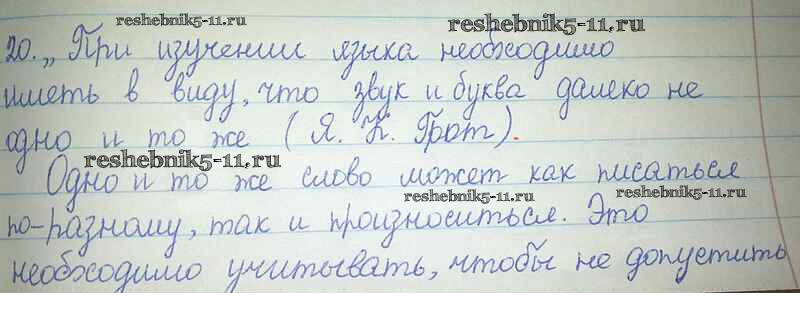 reshebnik5-11.ru reshebnik5-11.ru
20. „При изучении языка необходимо
иметь в виду, что звук и буква далеко не
одно и то же (Я. К. Грот).
reshebnik5-11.ru
Одно и то же слово может как писаться
reshebnik5-11.ru reshebnik5-11.ru
по-разному, так и произноситься. Это
необходимо учитывать, чтобы не допустить